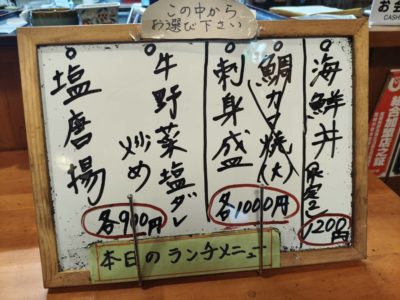 この中から
お選び下さい
海鮮丼
1200円
鯛カマ焼(大)
刺身盛
各1000円
牛野菜塩ダレ
炒め
塩唐揚
各900円
本日のランチメニュー
総合加盟店之証
CASH